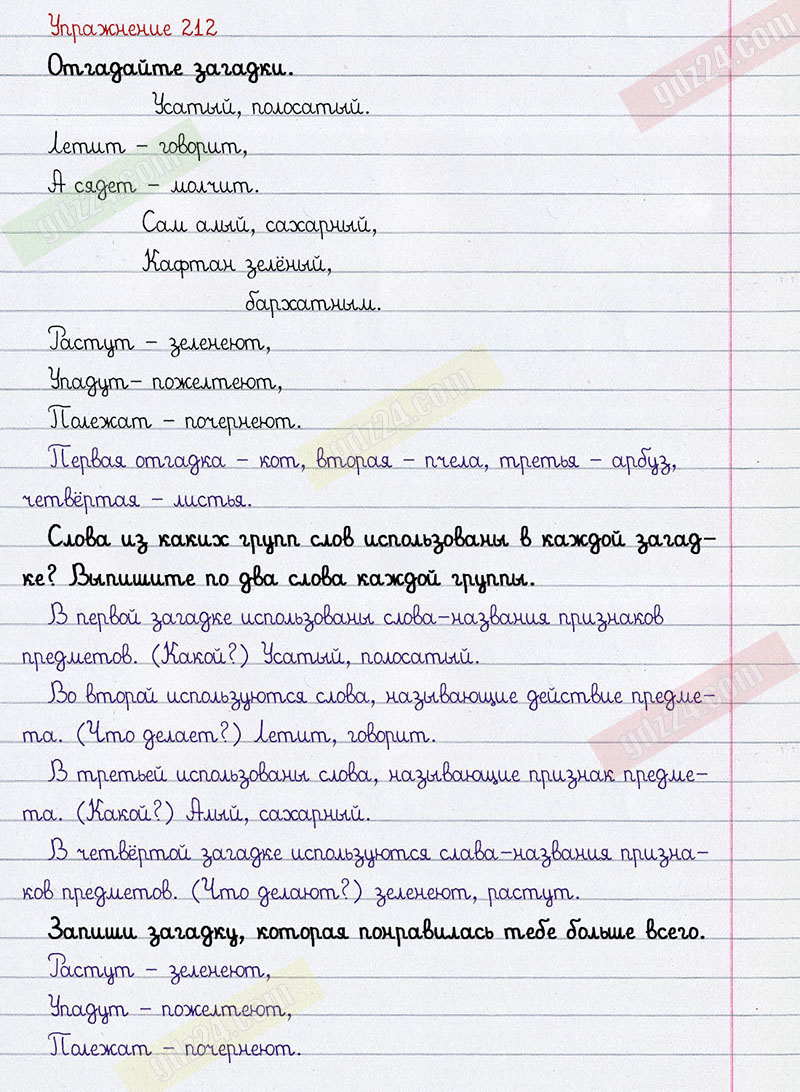 Упражнение 212
Отгадайте загадки.
Усатый, полосатый.
Летит – говорит,
А сядет – молчит.
Сам алый, сахарный,
Кафтан зелёный,
бархатным.
Растут – зеленеют,
Упадут– пожелтеют,
Полежат – почернеют.
Первая отгадка – кот, вторая – пчела, третья – арбуз,
четвёртая – листья.
Слова из каких групп слов использованы в каждой загад-
ке? Выпишите по два слова каждой группы.
В первой загадке использованы слова-названия признаков
предметов. (Какой?) Усатый, полосатый.
Во второй используются слова, называющие действие предме-
та. (Что делает?) Летит, говорит.
В третьей использованы слова, называющие признак предме-
та. (Какой?) Алый, сахарный.
В четвёртой загадке используются слава-названия призна-
ков предметов. (Что делают?) зеленеют, растут.
Запиши загадку, которая понравилась тебе больше всего.
Растут – зеленеют,
Упадут – пожелтеют,
Полежат – почернеют.
gdz24.com
gdz24.com
gdz24.com
gdz24.com
gdz24.com